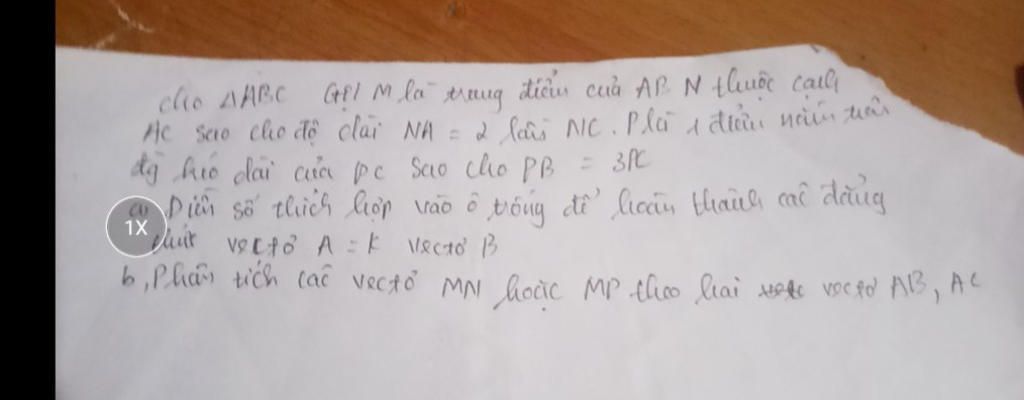 cho ΔABC Gọi M là trung điểm của AB N thuộc cạnh
AC sao cho độ dài NA = 2 lần NC. P là 1 điểm nằm trên
đg kéo dài của BC sao cho PB = 3PC
a, Điền số thích hợp vào ô trống để hoàn thành các đẳng
thức vectơ A = k vectơ B
b, Phân tích các vectơ MN hoặc MP theo hai vectơ AB, AC
1X